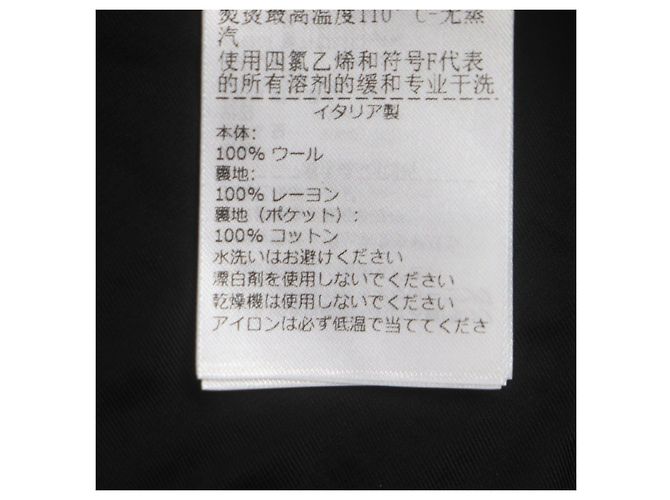 熨烫最高温度110°C-无蒸
汽
使用四氯乙烯和符号F代表
的所有溶剂的缓和专业干洗
イタリア製
本体:
100% ウール
裏地:
100% レーヨン
裏地 (ポケット) :
100% コットン
水洗いはお避けください
漂白剤を使用しないでください
乾燥機は使用しないでください
アイロンは必ず低温で当ててくださ